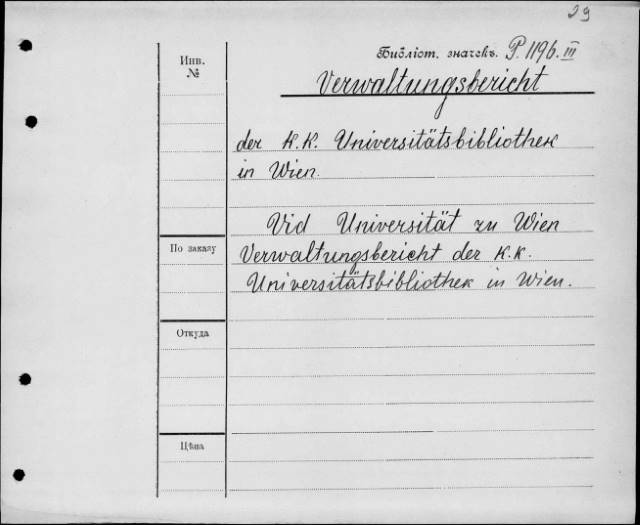 29
Инв.
№
Библіот. значекъ. P. 1196. III
Verwaltungsbericht
der K.K. Universitätsbibliothek
in Wien.
Vid Universität zu Wien
По заказу
Verwaltungsbericht der K.K.
Universitätsbibliothek in Wien.
Откуда
Цѣна